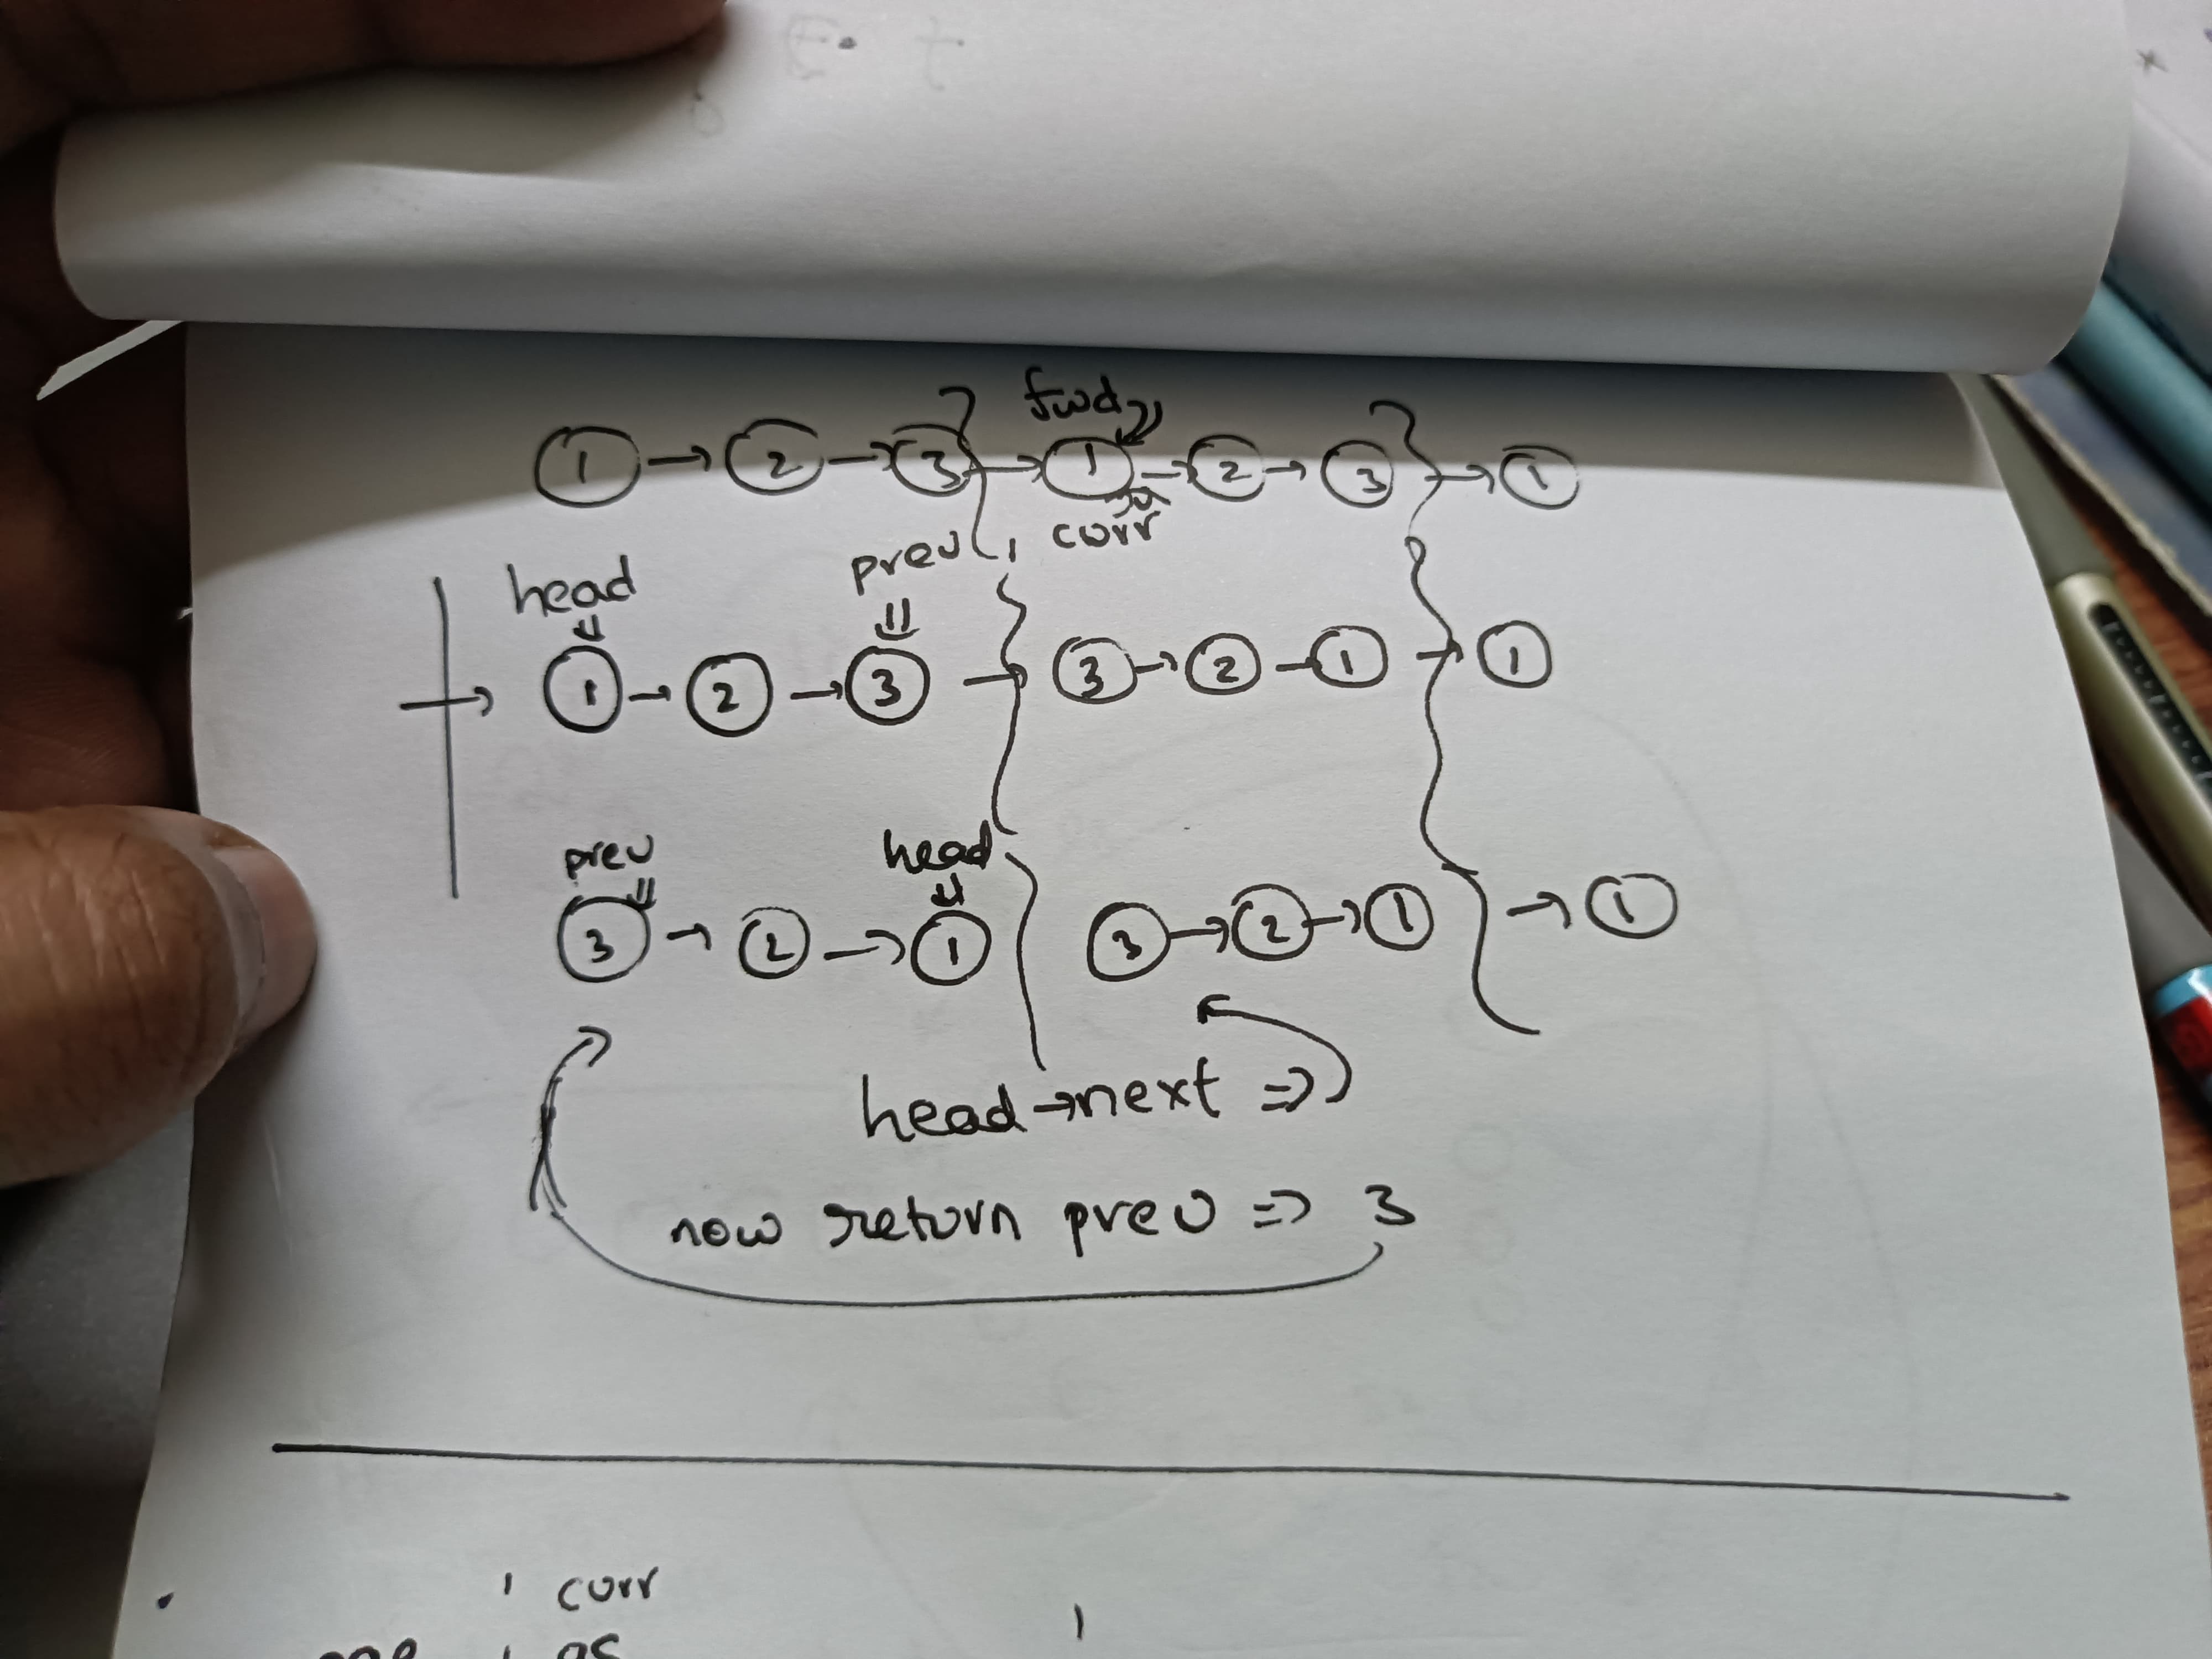 fwd
1 → 2 → 3 → 1 → 2 → 3 → 1
prev, curr
head
→ 1 → 2 → 3 → 3 → 2 → 1 → 1
prev head
3 → 2 → 1 3 → 2 → 1 → 1
head → next ⇒
now return prev ⇒ 3
curr